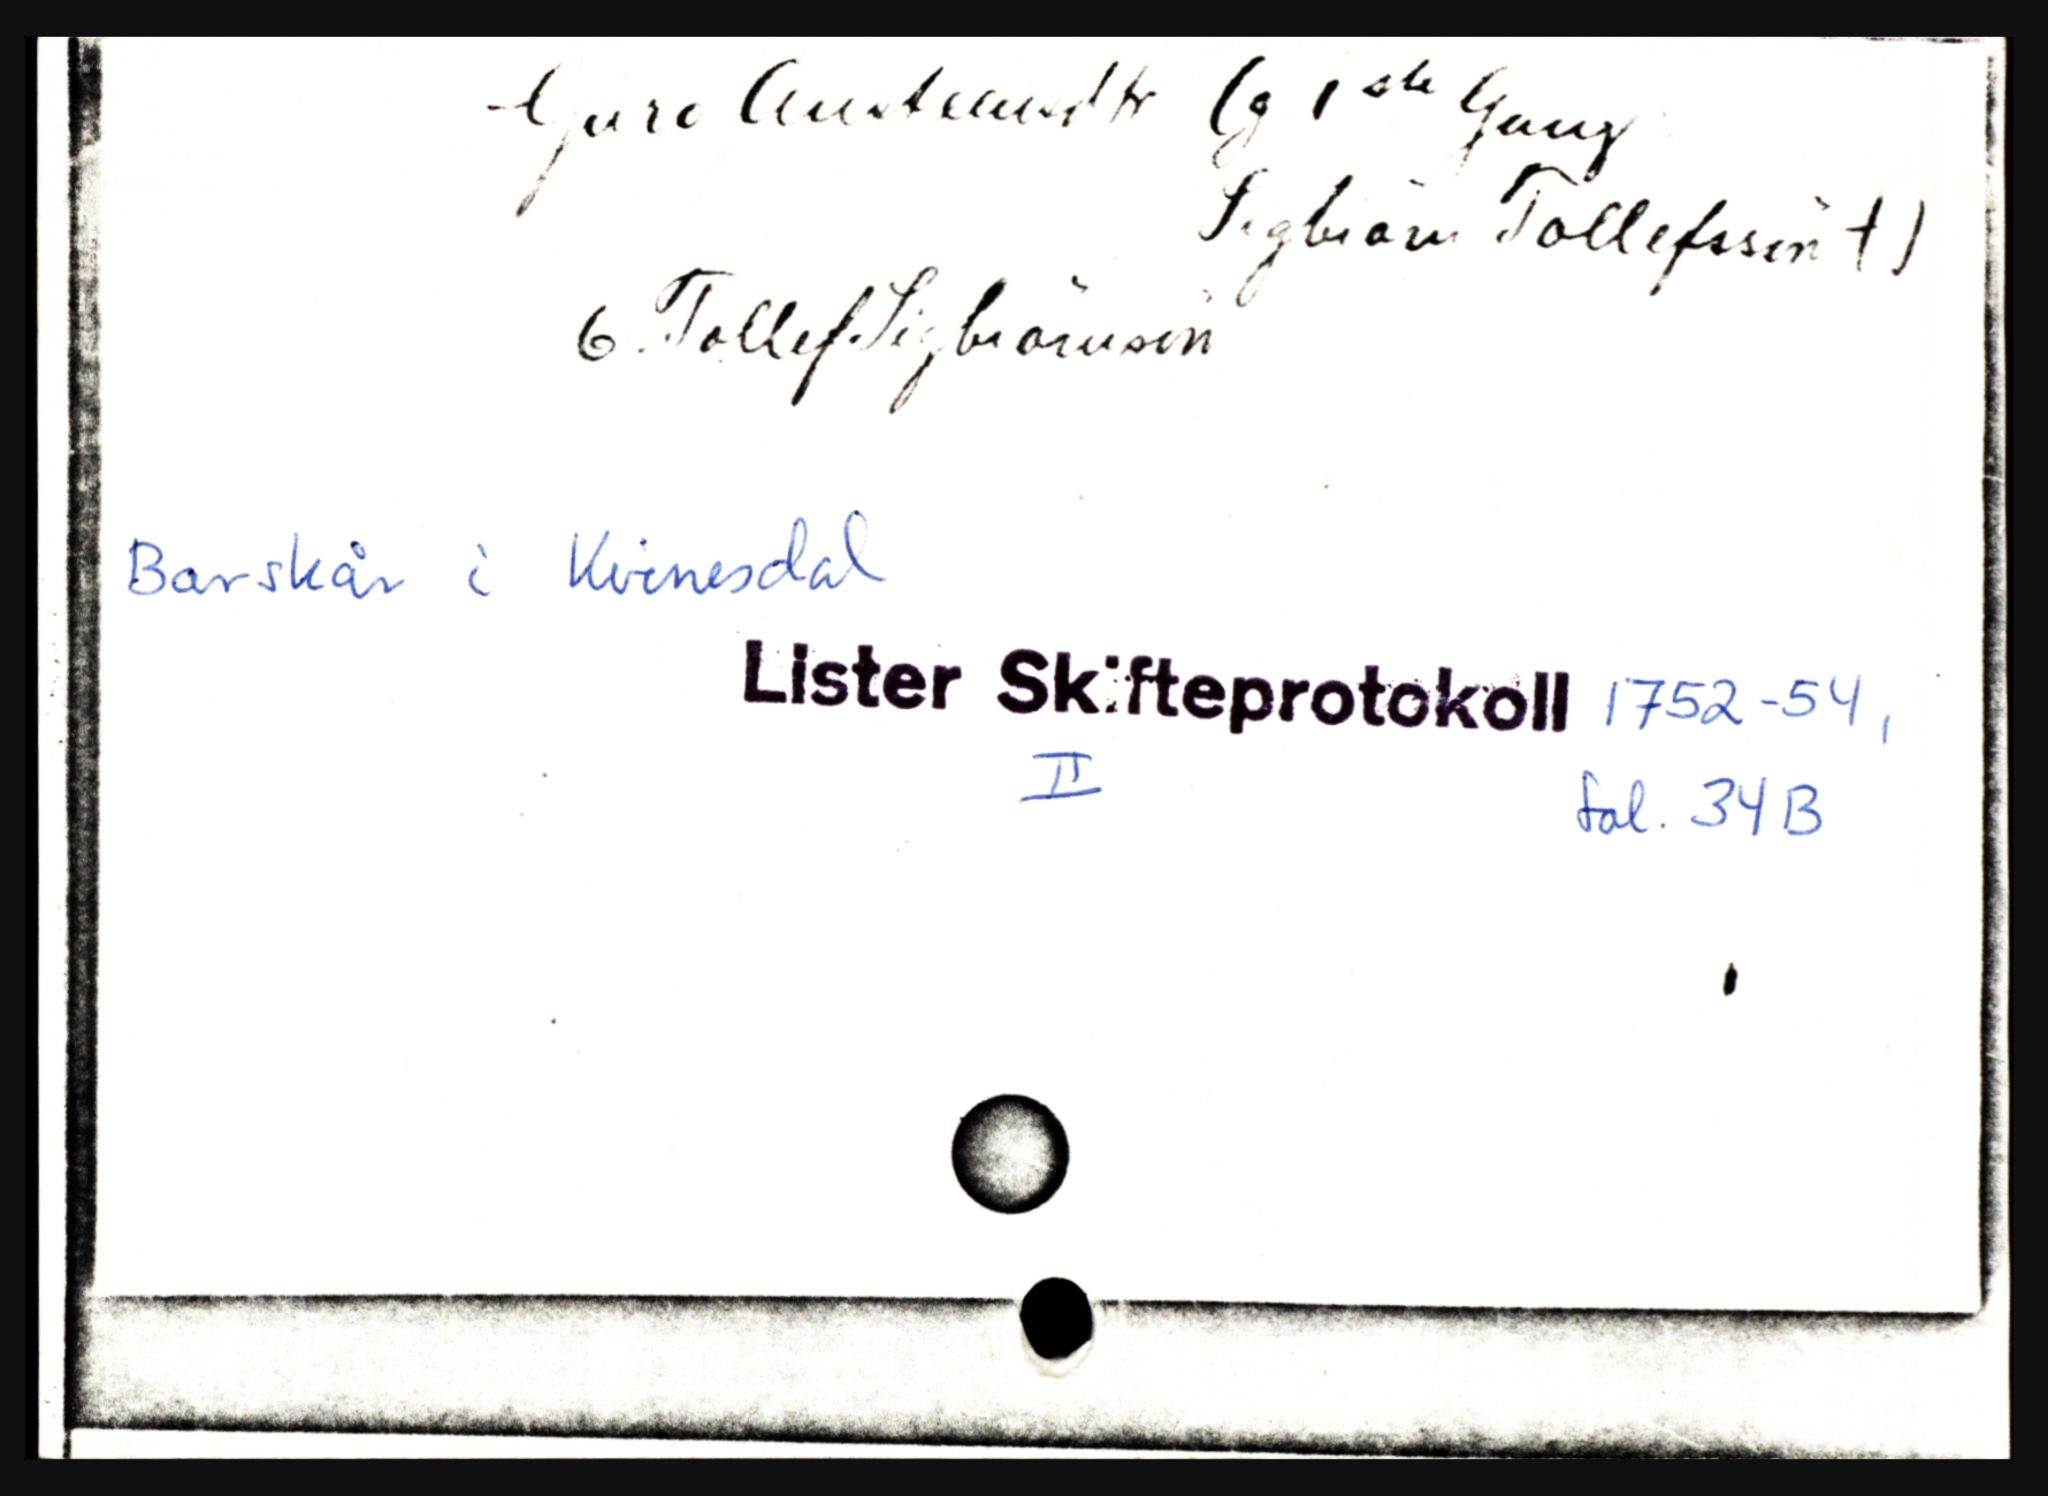 Guro Austendtr (g 1ste Gang
Sigbiörn Tollefssön †)
6. Tollef Sigbiörnsön
Barskår i Kvinesdal
Lister Skifteprotokoll 1752-54,
II
fol. 34B